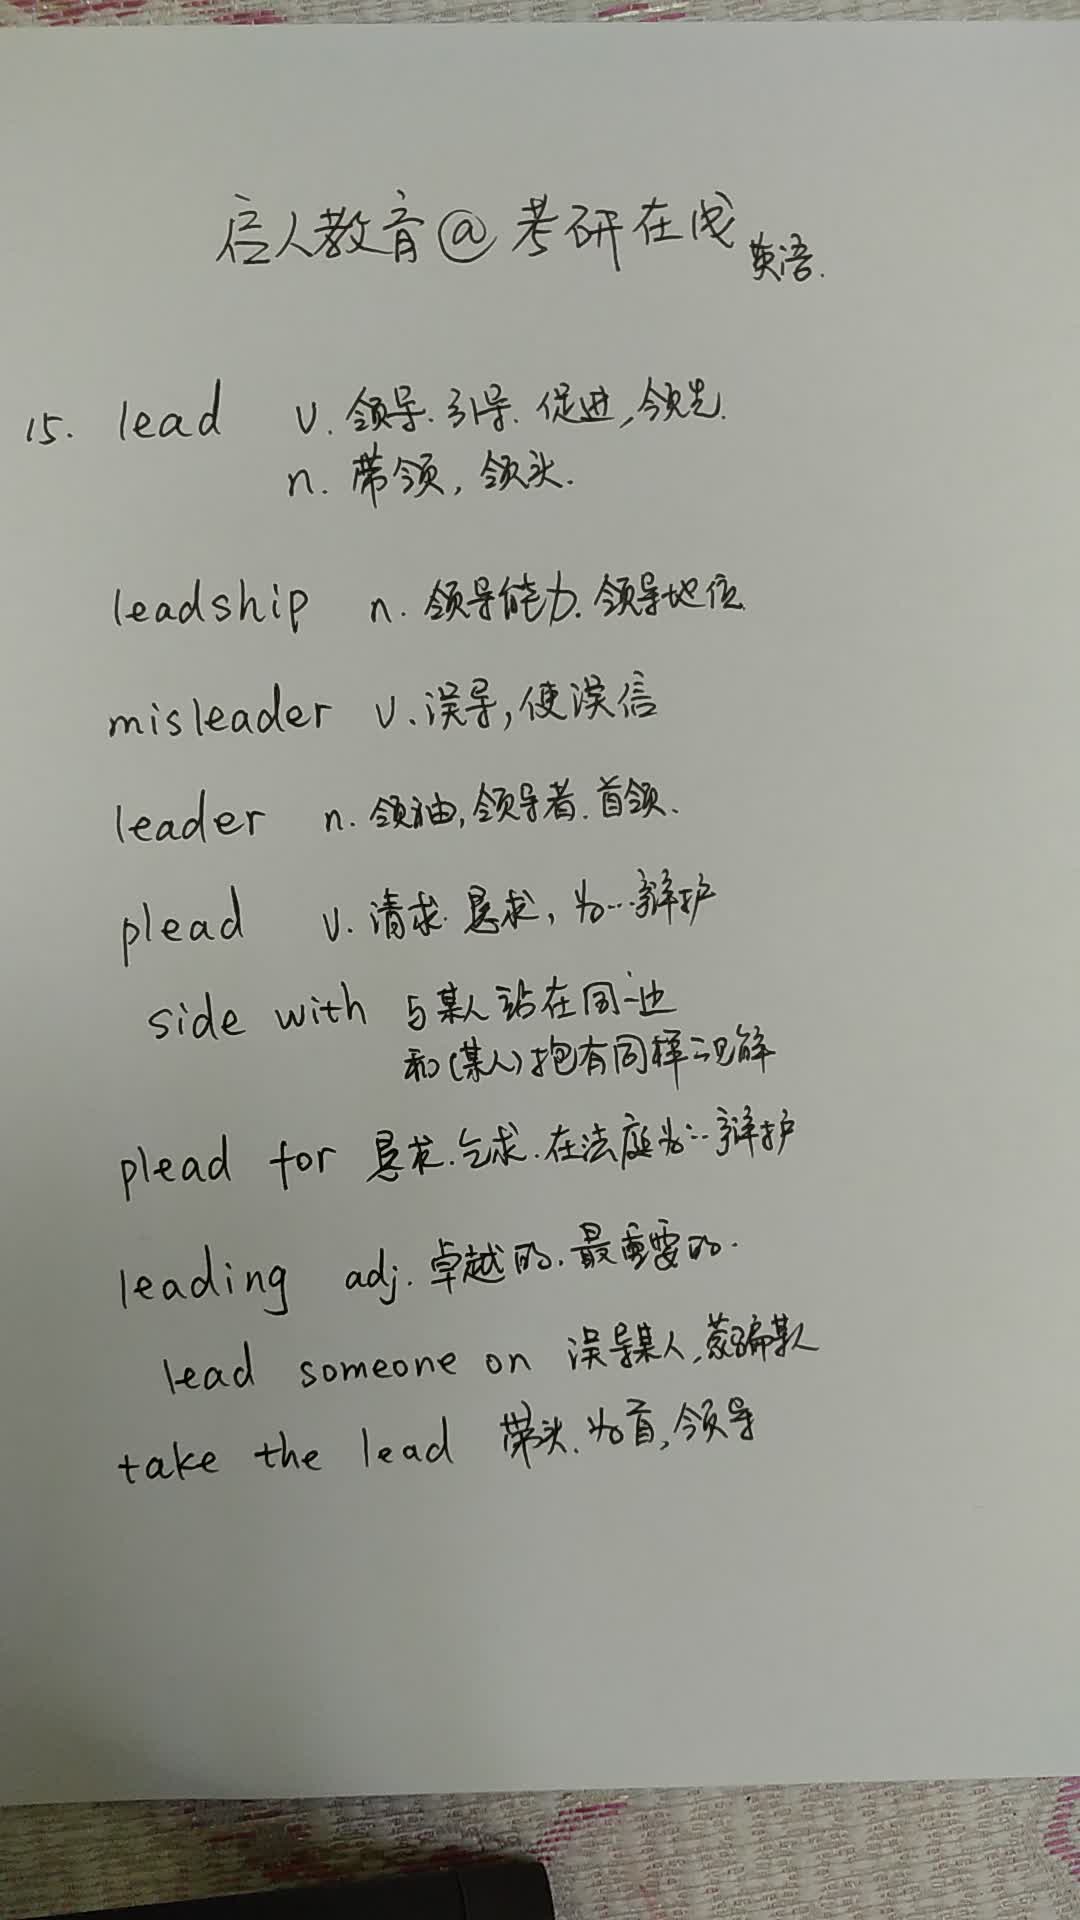 启人教育@考研在线 英语.
15. lead v. 领导. 引导. 促进, 领先.
n. 带领, 领头.
leadship n. 领导能力. 领导地位
misleader v. 误导, 使误信
leader n. 领袖, 领导者. 首领.
plead v. 请求. 恳求, 为…辩护
side with 与某人站在同一边
和(某人)抱有同样的见解
plead for 恳求. 乞求. 在法庭为…辩护
leading adj. 卓越的. 最重要的.
lead someone on 误导某人, 蒙骗某人
take the lead 带头. 为首, 领导